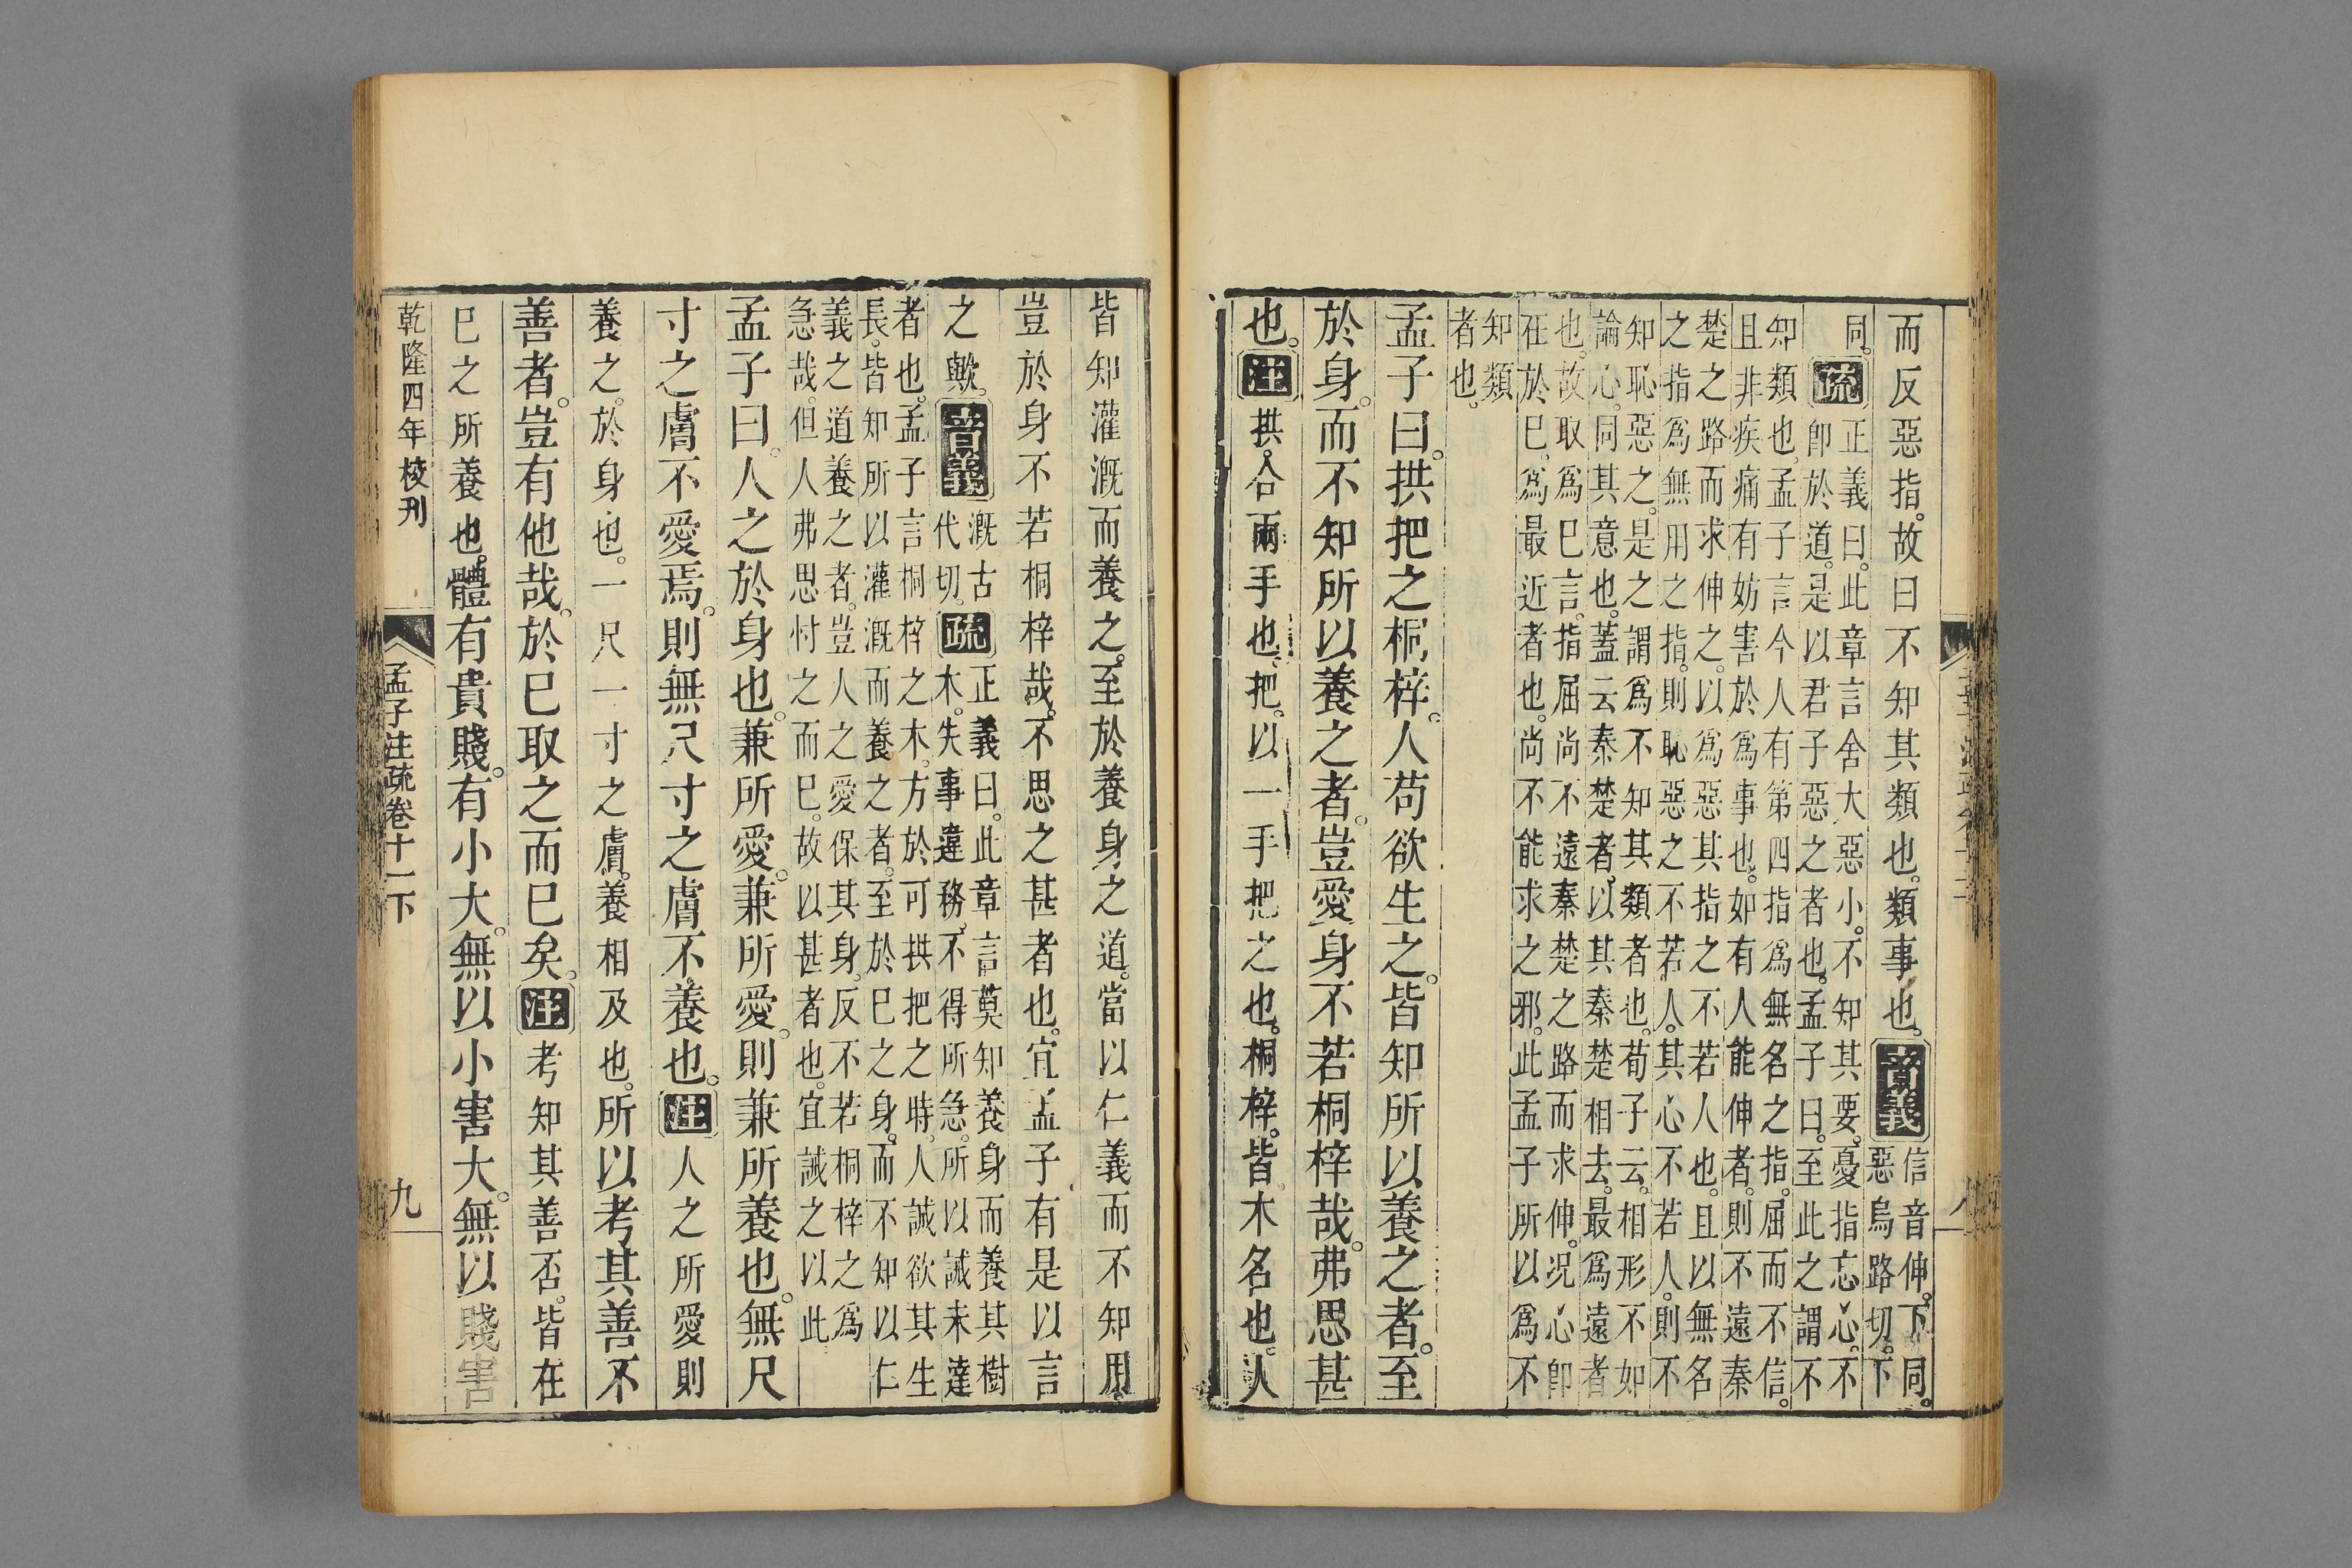 而反惡指。故曰不知其類也。類事也。音義信音伸。下同。
惡烏路切。下
同。疏正義曰。此章言舍大惡小。不知其要。憂指忘心。不
卽於道。是以君子惡之者也。孟子曰。至此之謂不
知類也。孟子言今人有第四指爲無名之指。屈而不信。
且非疾痛有妨害於爲事也。如有人能伸者。則不遠秦
楚之路而求伸之。以爲惡其指之不若人也。且以無名
之指爲無用之指。則恥惡之不若人。其心不若人。則不
知恥惡之。是之謂爲不知其類者也。荀子云。相形不如
論心。同其意也。蓋云秦楚者。以其秦楚相去。最爲遠者
也。故取爲巳言。指屈尚不遠秦楚之路而求伸。况心卽
在於巳。爲最近者也。尚不能求之邪。此孟子所以爲不
知類
者也。
孟子曰。拱把之桐梓。人苟欲生之。皆知所以養之者。至
於身。而不知所以養之者。豈愛身不若桐梓哉。弗思甚
也。注拱。合兩手也。把。以一手把之也。桐梓。皆木名也。人
皆知灌漑而養之。至於養身之道。當以仁義而不知用。
豈於身不若桐梓哉。不思之甚者也。宜孟子有是以言
之歟。音義漑古
代切。疏正義曰。此章言莫知養身而養其樹
木。失事違務。不得所急。所以誡未達
者也。孟子言桐梓之木。方於可拱把之時。人誠欲其生
長。皆知所以灌漑而養之者。至於巳之身。而不知以仁
義之道養之者。豈人之愛保其身。反不若桐梓之爲
急哉。但人弗思忖之而巳。故以甚者也。宜誡之以此
孟子曰。人之於身也。兼所愛。兼所愛。則兼所養也。無尺
寸之膚不愛焉。則無尺寸之膚不養也。注人之所愛則
養之。於身也。一尺一寸之膚。養相及也。所以考其善不
善者。豈有他哉。於巳取之而巳矣。注考知其善否。皆在
巳之所養也。體有貴賤。有小大。無以小害大。無以賤害
乾隆四年校刊
孟子注疏卷十一下
九